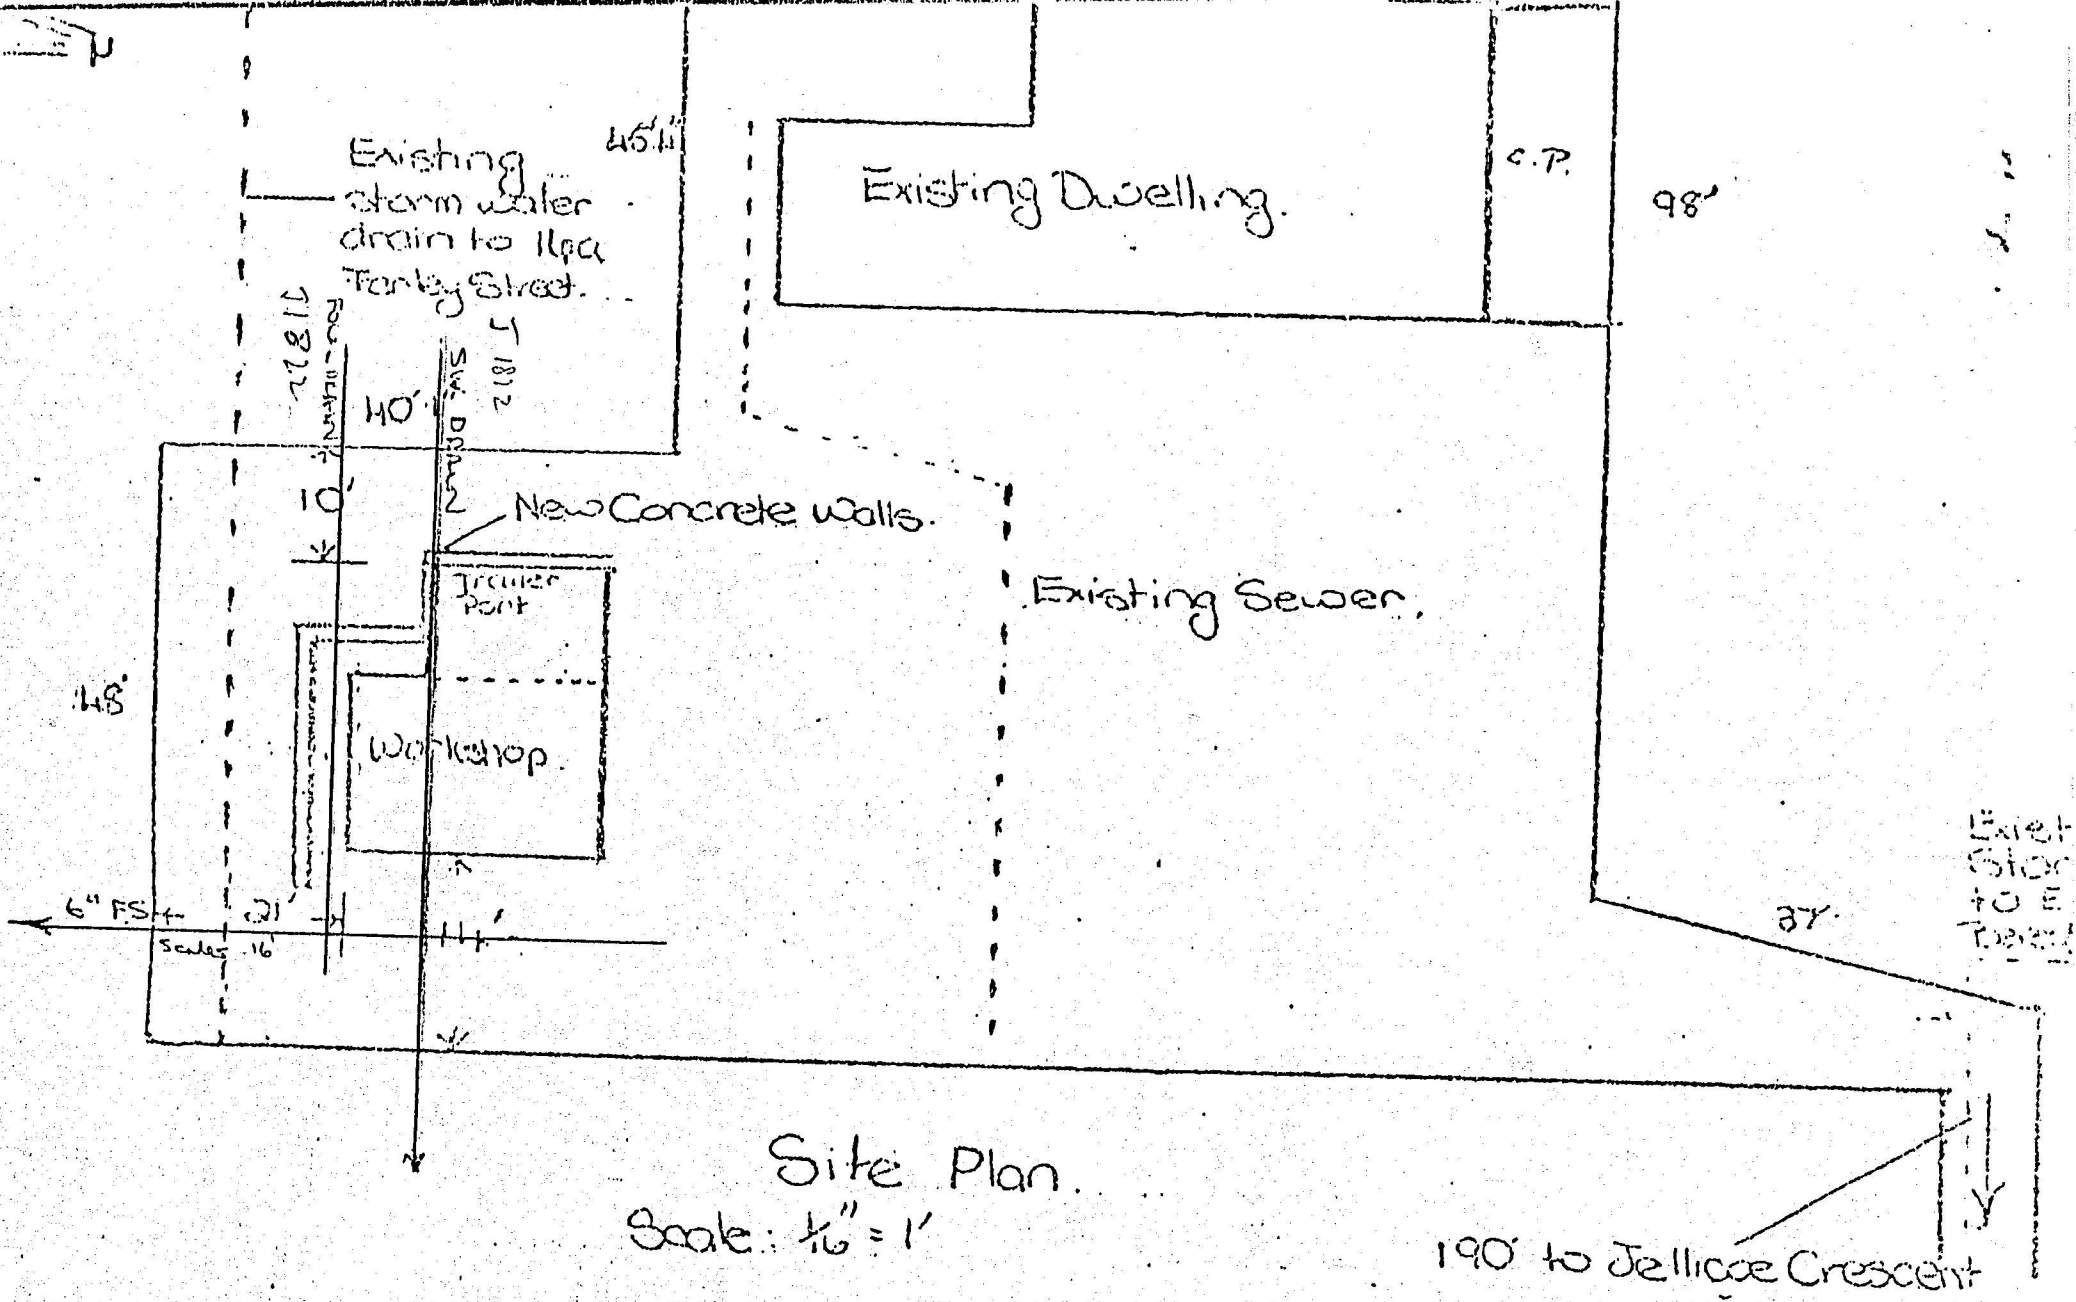 N
Existing
storm water
drain to 11pa
Street.
45'11"
Existing Dwelling.
C.P.
98'
71822
41812
S.W. DRAIN
40'
10'
New Concrete Walls.
Port
Existing Sewer.
48'
Workshop.
6" F.S.
21'
Scales 16'
37'
Exist
Stor
to E
Site Plan.
Scale: 1/16" = 1'
190' to Jellicoe Crescent